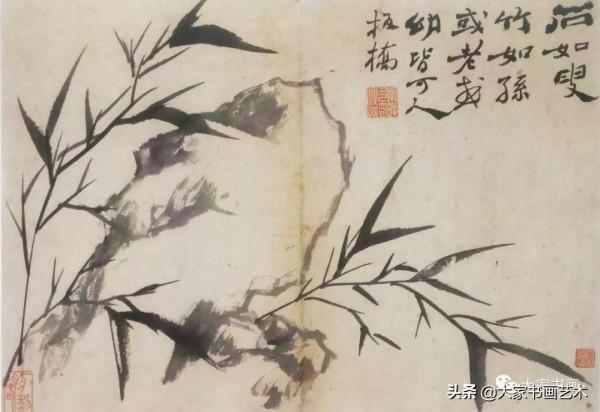 石如叟
竹如孫
或老或
幼皆可人
板橋
大家书画
头条 @大家书画艺术